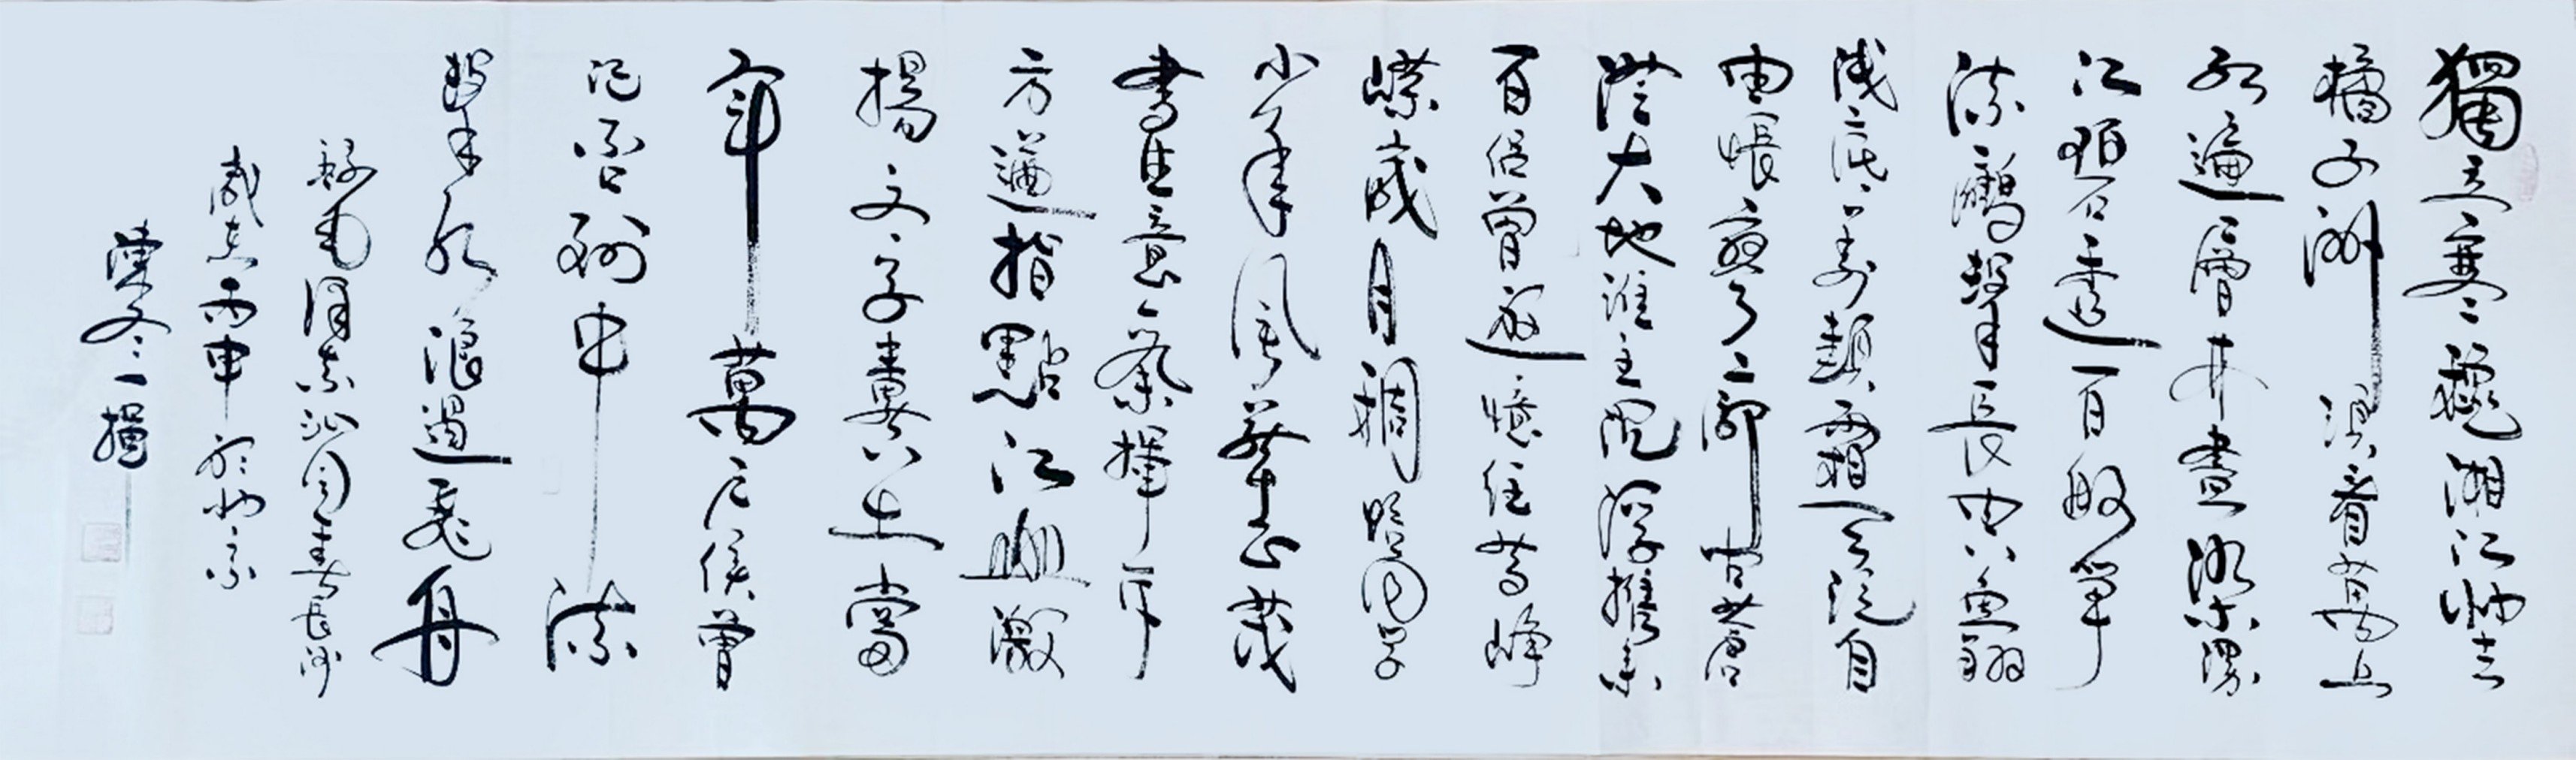 獨立寒秋湘江北去
橘子洲頭看萬山
紅遍層林盡染漫
江碧透百舸爭
流鷹擊長空魚翔
淺底萬類霜天競自
由悵寥廓問蒼
茫大地誰主沉浮攜來
百侶曾遊憶往昔崢
嶸歲月稠恰同學
少年風華正茂
書生意氣揮斥
方遒指點江山激
揚文字糞土當
年萬戶侯曾
記否到中流
擊水浪遏飛舟
錄毛澤東沁園春長沙
歲在丙申於北京
冬一揮